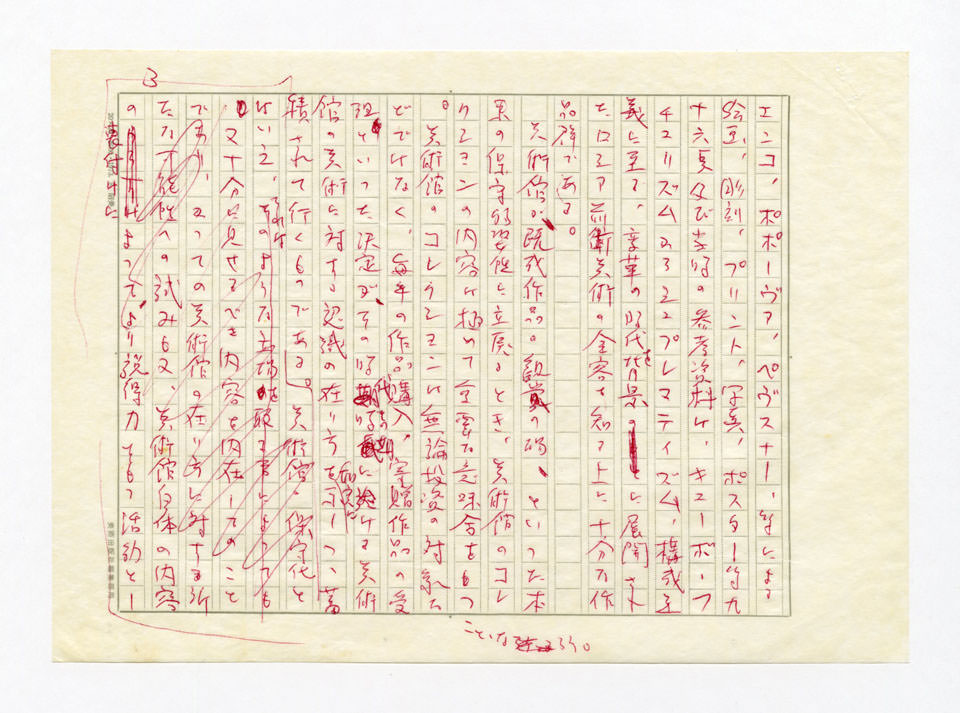 エンコ、ポポーヴァ、ペヴスナー、等による
絵画、彫刻、プリント、写真、ポスター等九
十六点及び当時の参考資料は、キューボ・フ
ォーリズム シュプレマティズム、構成主
義に至る、革命の時代背景をもとに展開され
たロシア前衛美術の全容を知る上に十分な作
品群である。
美術館が既成作品の観賞の場、といった本
来の保守的姿勢に立戻るとき、美術館のコレ
クションの内容は極めて重要な意味合をもつ
。美術館のコレクションは無論投資の対象な
どではなく、毎年の作品購入、寄贈作品の受
理といった決定がその時 に於ける美術
館の美術に対する認識の在り方を示しつつ、蓄
積されて行くものである。美術館・保守化と
はいえ、 そのような立場を取る事によっても
又十分見せるべき内容を内在してのこと
であり、 の美術館の在り方に対する新
たな可能性への試みも又、美術館自体の内容
の裏付けによって、より説得力をもつ活動とし
ことになろう。
3